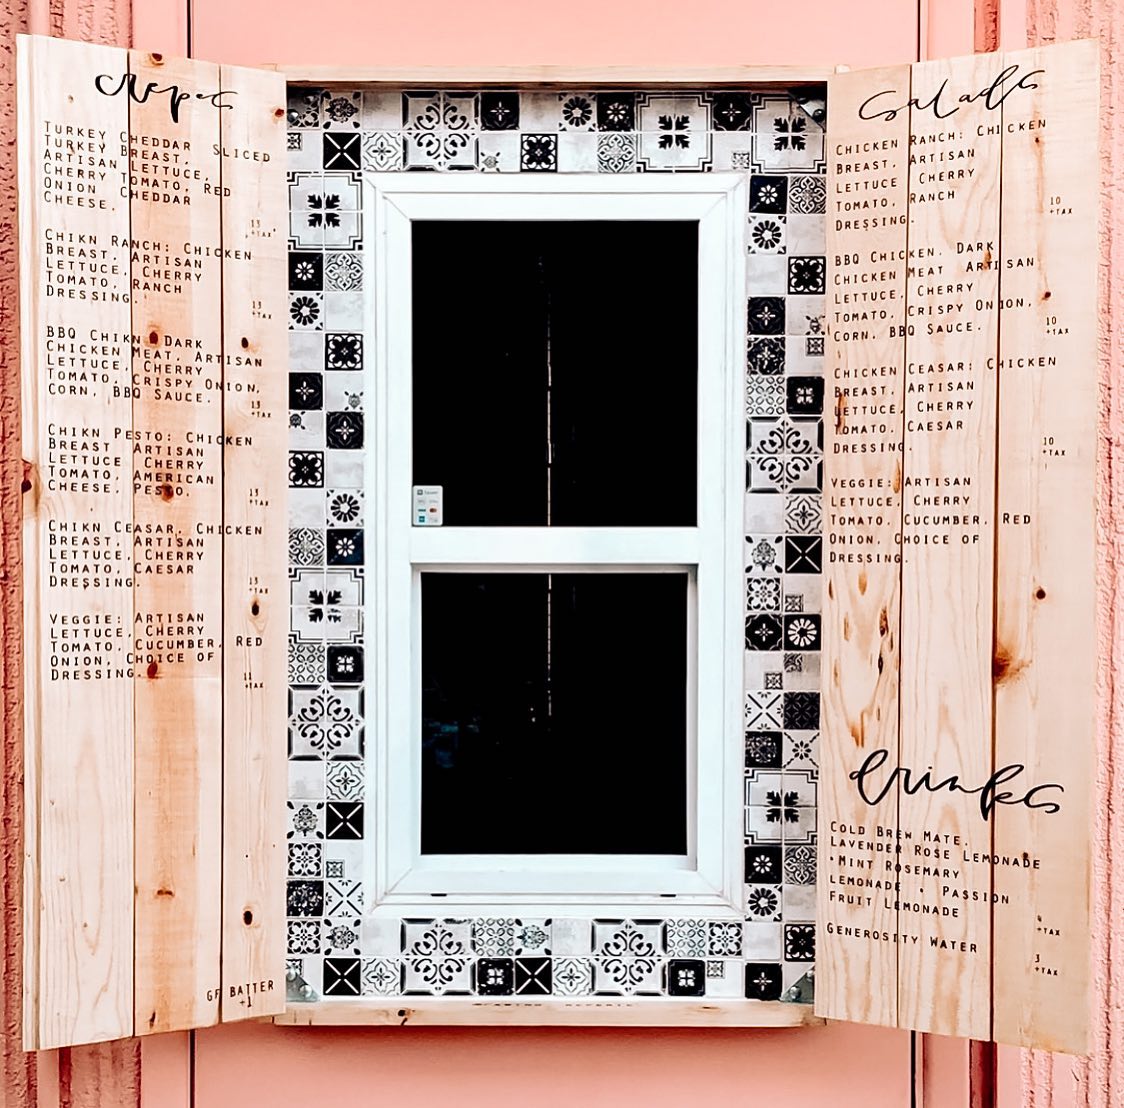 crepes
TURKEY CHEDDAR SLICED
TURKEY BREAST,
ARTISAN LETTUCE,
CHERRY TOMATO, RED
ONION CHEDDAR
CHEESE.
13
+TAX
CHIKN RANCH: CHICKEN
BREAST, ARTISAN
LETTUCE, CHERRY
TOMATO, RANCH
DRESSING.
13
+TAX
BBQ CHIKN DARK
CHICKEN MEAT, ARTISAN
LETTUCE, CHERRY
TOMATO, CRISPY ONION,
CORN, BBQ SAUCE.
13
+TAX
CHIKN PESTO: CHICKEN
BREAST ARTISAN
LETTUCE CHERRY
TOMATO, AMERICAN
CHEESE, PESTO.
13
+TAX
CHIKN CEASAR, CHICKEN
BREAST, ARTISAN
LETTUCE, CHERRY
TOMATO, CAESAR
DRESSING.
13
+TAX
VEGGIE: ARTISAN
LETTUCE, CHERRY
TOMATO, CUCUMBER, RED
ONION, CHOICE OF
DRESSING.
11
+TAX
GF BATTER
+1
salads
CHICKEN RANCH: CHICKEN
BREAST, ARTISAN
LETTUCE CHERRY
TOMATO, RANCH
DRESSING.
10
+TAX
BBQ CHICKEN. DARK
CHICKEN MEAT ARTISAN
LETTUCE, CHERRY
TOMATO, CRISPY ONION,
CORN, BBQ SAUCE.
10
+TAX
CHICKEN CEASAR: CHICKEN
BREAST, ARTISAN
LETTUCE, CHERRY
TOMATO, CAESAR
DRESSING.
10
+TAX
VEGGIE: ARTISAN
LETTUCE, CHERRY
TOMATO, CUCUMBER, RED
ONION, CHOICE OF
DRESSING.
drinks
COLD BREW MATE,
LAVENDER ROSE LEMONADE
•MINT ROSEMARY
LEMONADE • PASSION
FRUIT LEMONADE
4
+TAX
GENEROSITY WATER
3
+TAX